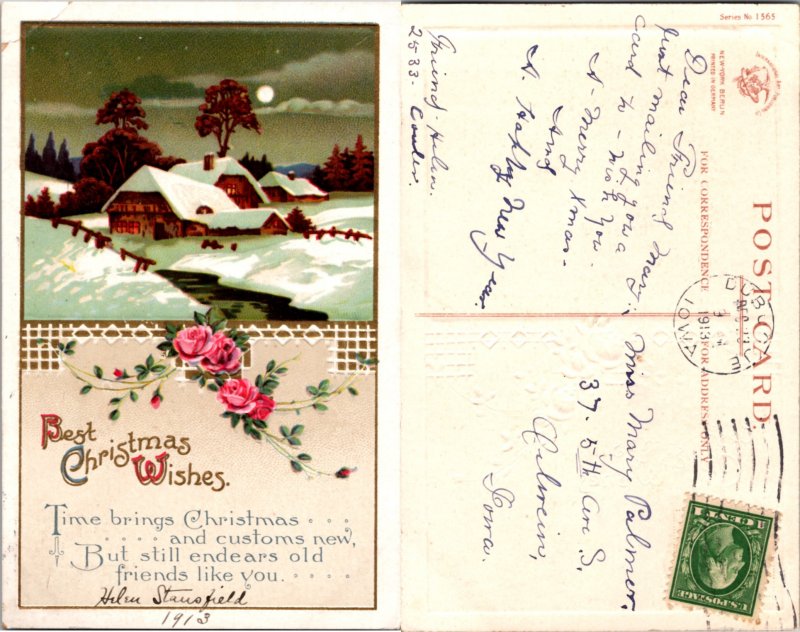 Best
Christmas
Wishes.
Time brings Christmas . . . .
. . . . . and customs new,
But still endears old
friends like you. . . . . .
Helen Stansfield
1913
Series No 1565
NEW-YORK BERLIN
PRINTED IN GERMANY
POST CARD
FOR CORRESPONDENCE
FOR ADDRESS ONLY
Dear Friend Mary:
Just mailing you a
card to - wish you.
A. Merry Xmas.
And
A. Happy New Year.
Friend. Helen.
2533- Coules.
DUBUQUE
DEC 23
1913
IOWA
Miss Mary Palmer.
37. 5th Av S.
Oelwein,
Iowa.
U.S. POSTAGE
1 CENT 1